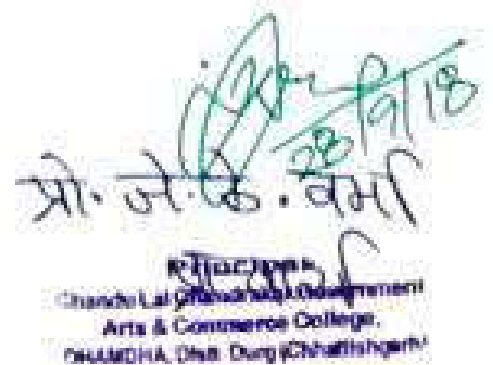 28/9/18
प्रो. जे. के. वर्मा
Principal
Chandu Lal Government
Arts & Commerce College,
DHAMDHA, Distt. Durg (Chhattisgarh)